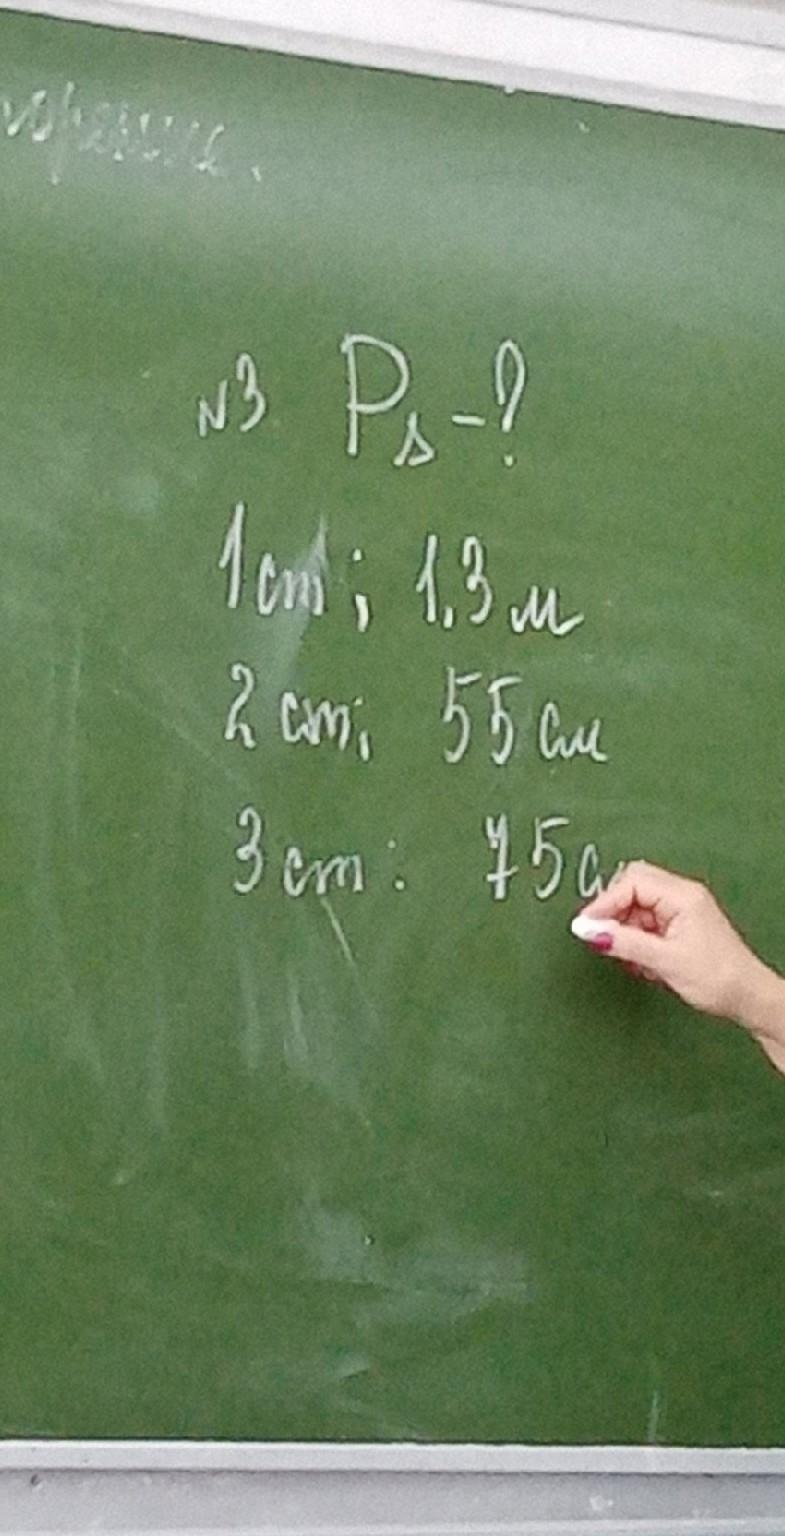 №3 P△ - ?
1 ст; 1,3 м
2 ст; 55 см
3 ст: 75 см